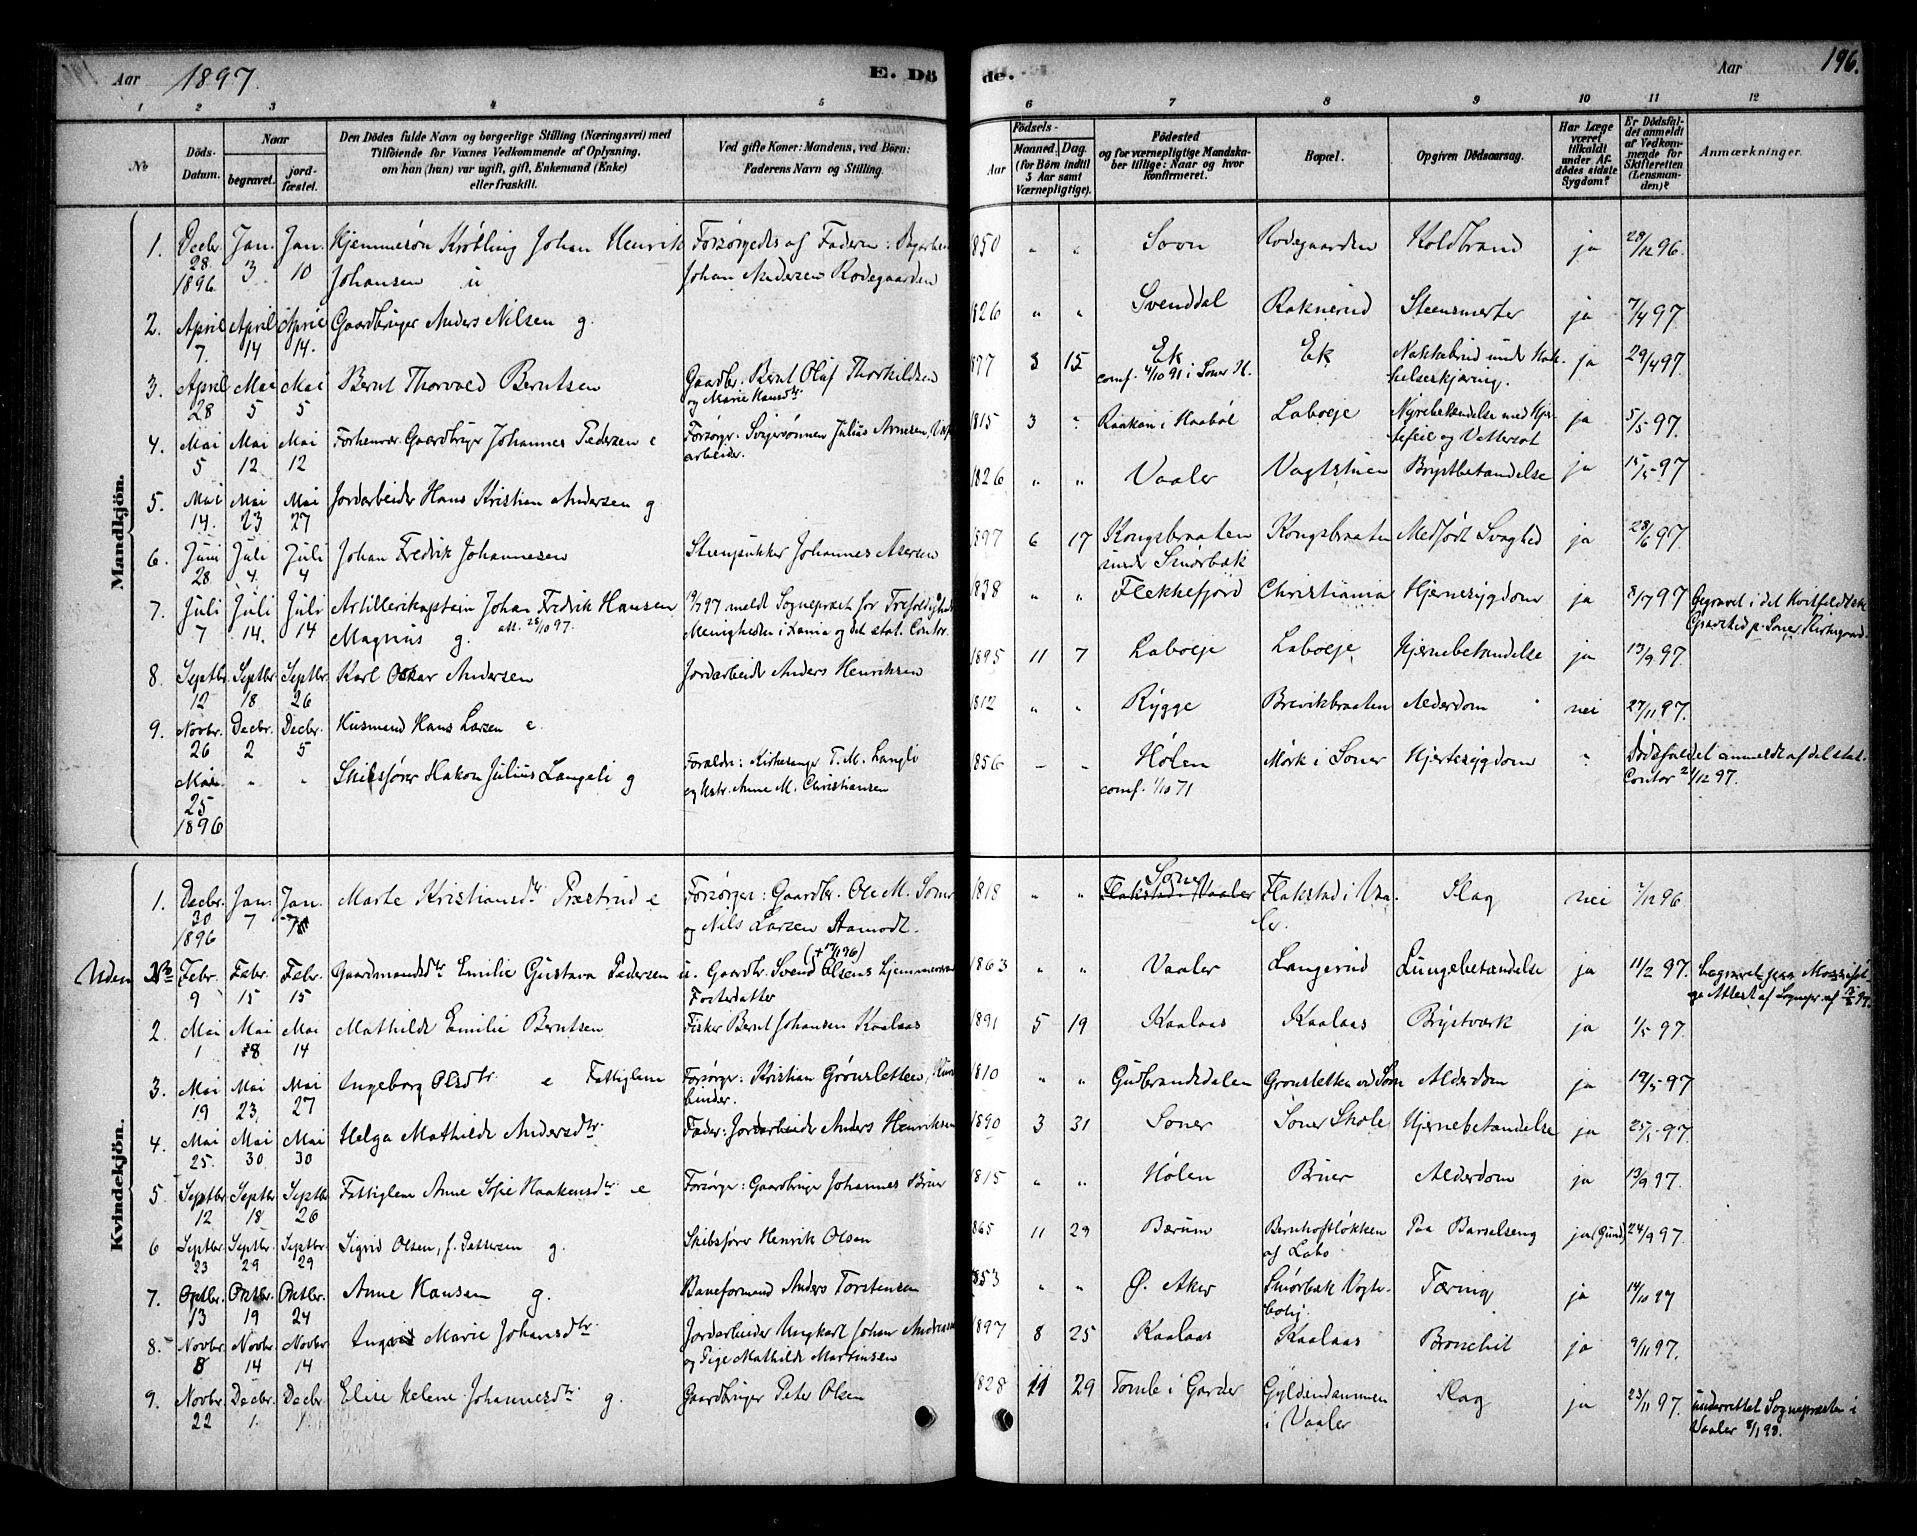 Aar 1897. E. Dö de. Aar 196.
1 2 3 4 5 6 7 8 9 10 11 12
No
Döds-Datum.
Naar
begravet.
jord-fæstet.
Den Dödes fulde Navn og borgerlige Stilling (Næringsvei) med
Tilföiende for Voxnes Vedkommende af Oplysning,
om han (hun) var ugift, gift, Enkemand (Enke)
eller fraskilt.
Ved gifte Koner: Mandens, ved Börn:
Faderens Navn og Stilling.
Födsels-
Aar
Maaned. Dag.
(for Börn indtil
5 Aar samt
Værnepligtige).
Födested
og for værnepligtige Mandska-
ber tillige: Naar og hvor
konfirmeret.
Bopæl.
Opgiven Dödsaarsag.
Har Læge
været
tilkaldt
under Af-
dödes sidste
Sygdom?
Er Dödsfal-
det anmeldt
af Vedkom-
mende for
Skifteretten
(Lensman-
den)?
Anmærkninger.
Mandkjön.
1. Decbr. 28. 1896 Jan. 3 Jan. 10 Hjemmesøn Johan Henrik Johansen u Forsørgedes af Faderen: Johan Andersen Rodegaarden 1850 " " Soon Rodegaarden Koldbrand ja 28/12 96.
2. April 7. April 14 April 14. Gaardbruger Anders Nilsen g. 1826 " " Svenddal Raknerud Steensmerter ja 7/4 97
3. April 28 Mai 5 Mai 5 Bernt Thorvald Berntsen Gaardbr. Bernt Oluf Thorkildsen og Marie Hansdtr 1877 3 15 Ek conf. 4/10 91 i Soner K. Ek ja 29/4 97.
4. Mai 5 Mai 12. Mai 12 Forhenvær. Gaardbruger Johannes Pedersen e Forsørger: Svigersønnen Julius Arnesen, arbeider. 1815 3 " Raakan i Haabøl Laboeje Nyrebetændelse med Hjertefeil og Vattersot ja 5/5 97
5. Mai 14. Mai 23 Mai 27 Jordarbeider Hans Kristian Andersen g 1826 " " Vaaler Vagtstuen Brystbetændelse ja 15/5 97
6. Juni 28. Juli 4. Juli 4 Johan Fredrik Johannesen Johannes 1897 6 17 Kongsbraaten under Smørbæk Kongsbraaten Medfødt Svaghed ja 28/6 97.
7. Juli 7 Juli 14. Juli 14 Artillerikaptein Johan Fredrik Hansen Magnus g. att. 28/10 97. 19/7 97 meldt Sognepræst for Trefoldigheds Menigheden i Xania og det stat. Contor 1838 " " Flekkefjord Christiania Hjernesygdom ja 8/7 97 Begravet i det Gravsted p. Soner Kirkegaard.
8. Septbr. 12 Septbr. 18 Septbr. 26 Karl Oskar Andersen Jordarbeider Anders Henriksen 1895 11 7 Laboeje Laboeje Hjernebetændelse ja 13/9 97.
9. Novbr. 26 Decbr. 2 Decbr. 5 Husmand Hans Larsen e. 1812 " " Rygge Brevikbraaten Alderdom nei 27/11 97.
Mai 25 1896 " " Skibsfører Hakon Julius Langeli g Forældre: Kirkesanger T. M. Langli og Hstr. Anne M. Christiansen 1856 – – Hølen conf. 1/10 71 Mørk i Soner Hjertesygdom " Dødsfaldet anmeldt af det stat. Contor 21/12 97.
Kvindekjön.
1. Decbr. 30 1896 Jan. 7 Jan. 7 Marte Kristiansdtr Præstrud e Forsørger: Gaardbr. Ole M. Soner og Nils Larsen Aamodt. 1818 " " Soner Flakstad i Vaaler Flakstad i Vaaler. Slag nei 96
Uden No Febr. 9 Febr. 15 Febr. 15 Gaardmandsdtr Emilie Gustava Pedersen u. Gaardbr. Svend Olsens Hjemmeværende Fosterdatter 1863 " " Vaaler Langerud Lungebetændelse ja 11/2 97.
2. Mai 1 Mai 8 Mai 14 Mathilde Emilie Berntsen Fisker Bernt Johansen Kaalaas 1891 5 19 Kaalaas Kaalaas Brystværk ja 1/5 97.
3. Mai 19 Mai 23. Mai 27 Ingeborg Olsdtr e Fattiglem Forsørger: Kristian Grønsletten, 1810 " " Gulbrandsdalen Grønsletten ved Son Alderdom ja 19/5 97
4. Mai 25. Mai 30 Mai 30 Helga Mathilde Andersdtr. Fader: Jordarbeider Anders Henriksen 1890 3 31 Soner Soner Skole Hjernebetændelse ja 25/5 97
5 Septbr 12 Septbr 18 Septbr 26 Fattiglem Anne Sofie Haakensdtr e Forsørger: Gaardbruger Johannes Bruer 1815 " " Hølen Bruer Alderdom ja 13/9 97.
6 Septbr. 23 Septbr. 29 Septbr. 29 Sigrid Olsen, f. Pettersen g. Skibsfører Henrik Olsen 1865 11 29 Bærum Bernhoftløkken af Labo Paa Barselseng ja (Gund) 24/9 97.
7. Oktbr. 13 Oktbr. 19 Oktbr. 24 Anne Hansen g. Baneformand Anders Torstensen 1853 " " Ø. Aker Smørbæk Vogterbolig. Tæring ja 14/10 97
8. Novbr. 8 Novbr. 14 Novbr. 14 Ingrid Marie Johansdtr. Jordarbeider Ungkarl Johan Andreasen og Pige Mathilde Martinsen 1897 8 25 Kaalaas Kaalaas Bronchit ja 9/11 97.
9. Novbr. 22 Decbr. 1. Decbr. 1 Elise Helene Johannesdtr g. Gaardbruger Peter Olsen 1828 11 29 Tomb i Garder Gyldendammen i Vaaler Slag ja 23/11 97. underrettet Sognepresten i Vaaler 8/1 98.